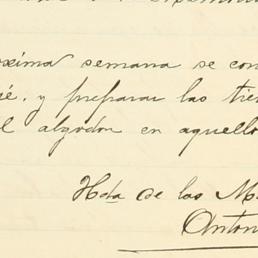 oxima semana se con
é, y preparar las tier
l algodon en aquello
Hda de las M
Anton